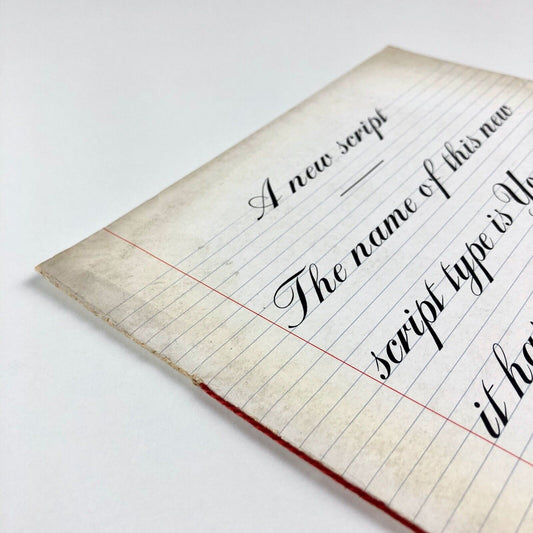 A new script
The name of this new
script type is
it